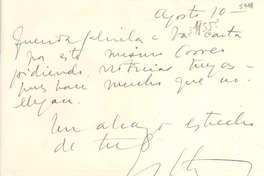 Agosto 10 —
1955.
Querida Gabriela: Va carta
por este mismo correo
pidiendo noticias tuyas —
pues hace mucho que no
llegan.
Un abrazo estrecho
de tu